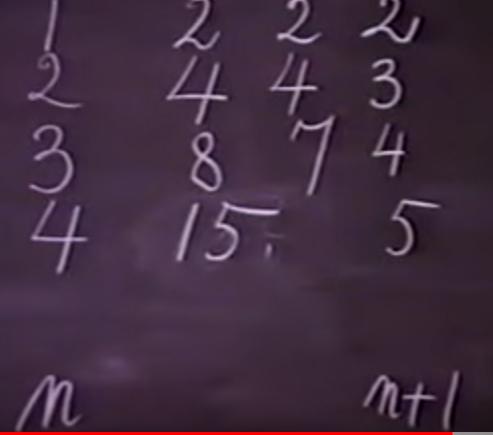 1 2 2 2
2 4 4 3
3 8 7 4
4 15 5
n n+1